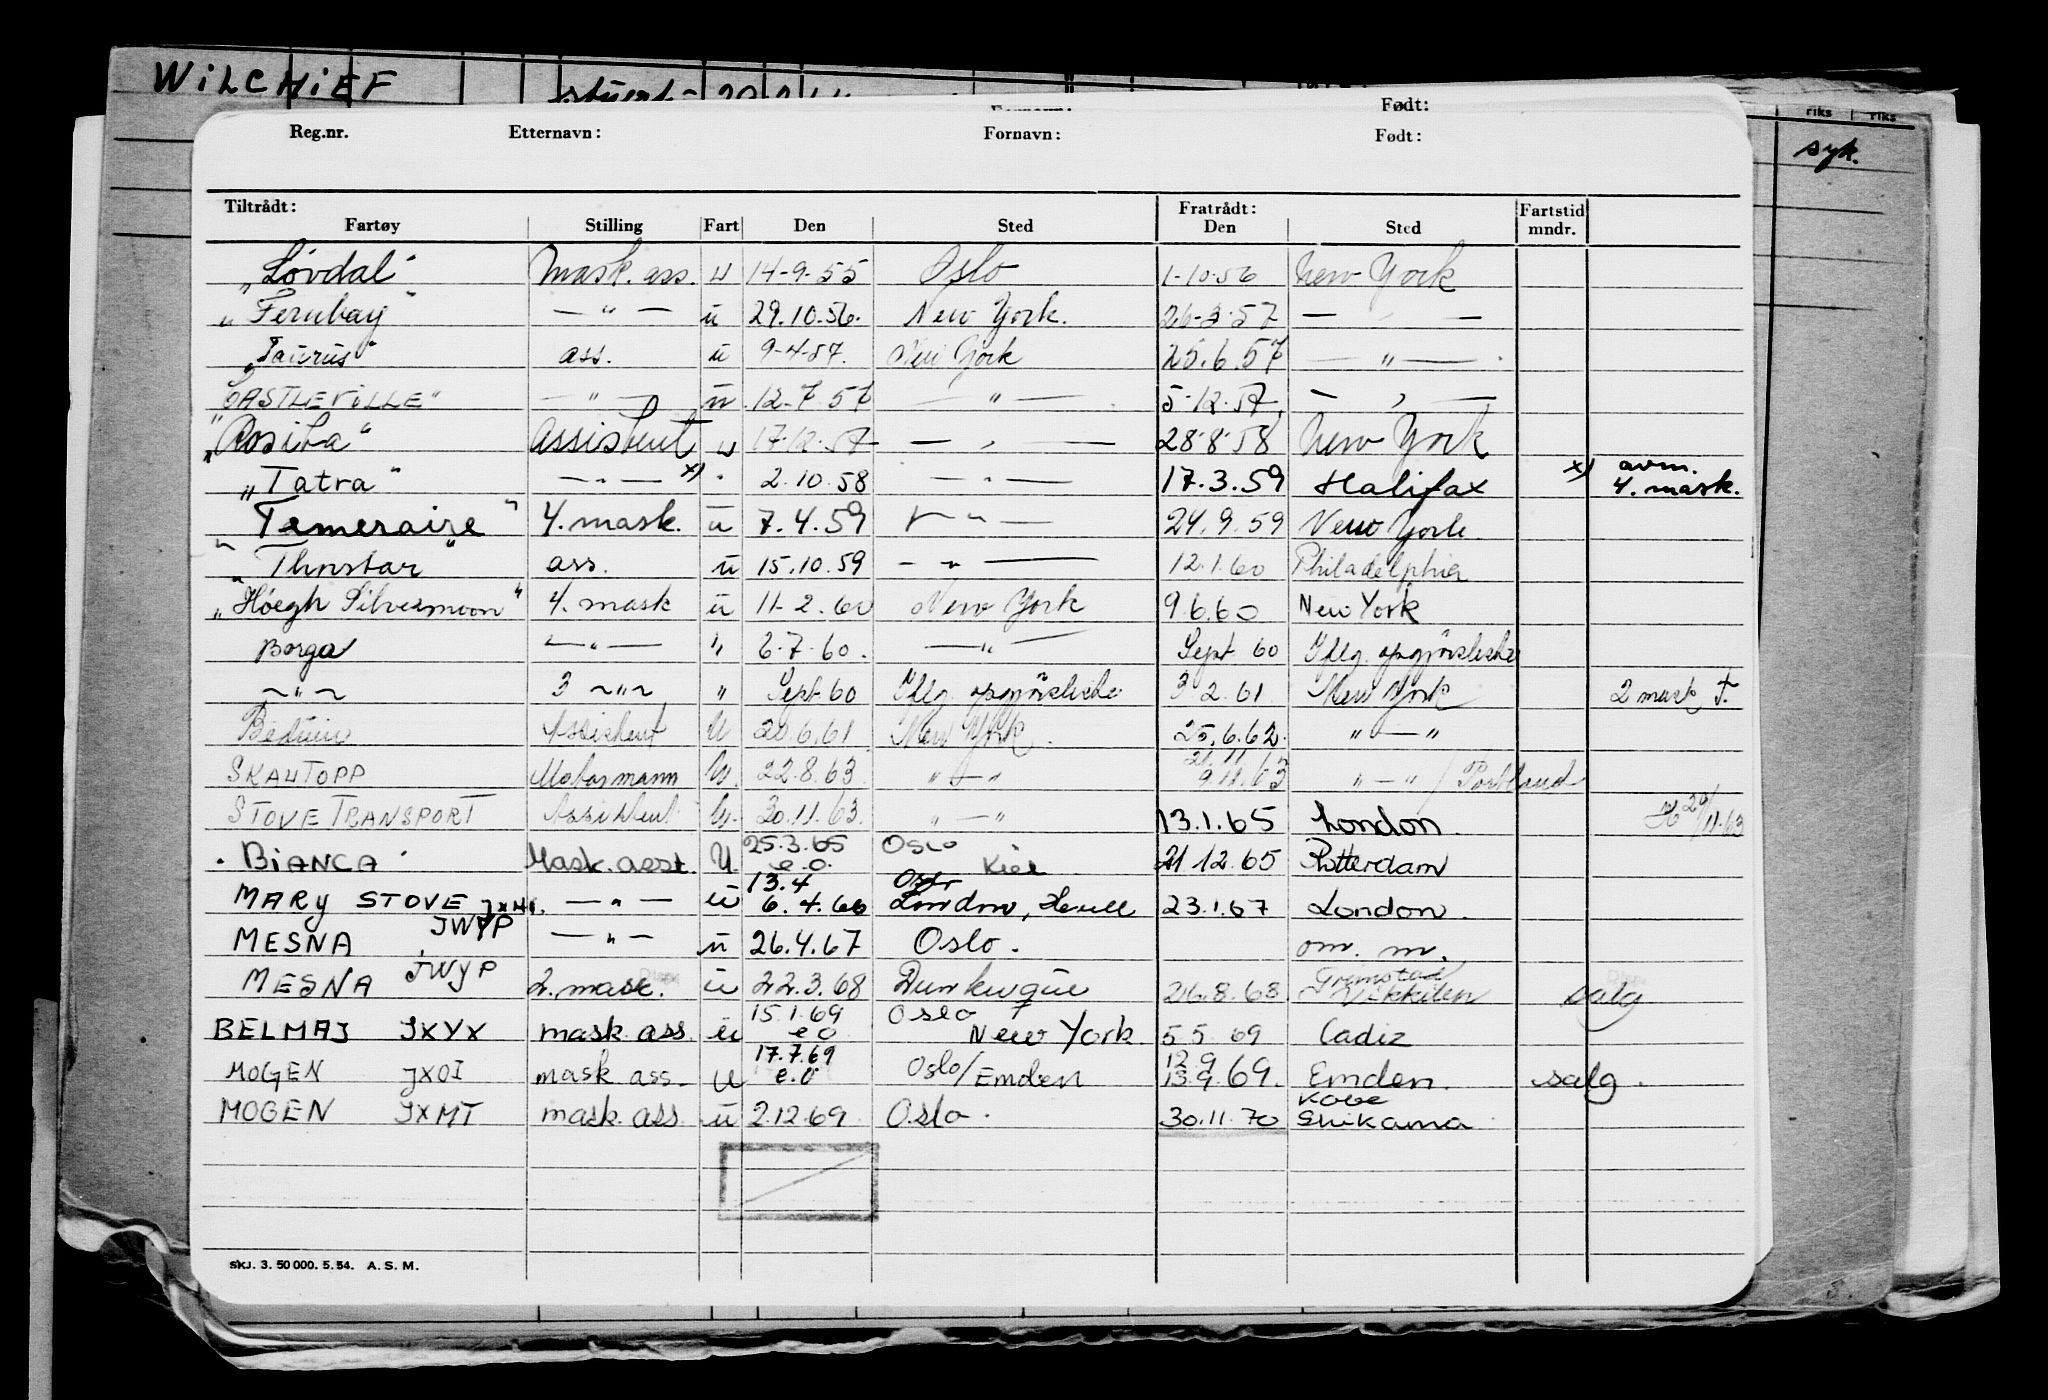 WILCHIEF
Født:
riks riks
syk.
Reg.nr. Etternavn: Fornavn: Født:
Tiltrådt: Fratrådt: Fartstid
Fartøy Stilling Fart Den Sted Den Sted mndr.
"Løvdal" Mask. ass. u 14-9-55 Oslo 1-10-56 New York
"Fernbay" — " — u 29.10.56. New York. 26-3-57 — " —
"Taurus" ass. u 9-4-57. New York 25.6.57 — " —
"CASTLEVILLE" — " — u 12-7-57 — " — 5-12-57 — " —
"Rosita" Assistent u 17-12-57 — " — 28-8-58 New York
"Tatra" — " — x) " 2.10.58 — " — 17.3.59 Halifax x) avm. 4. mask.
"Temeraire" 4. mask. u 7.4.59 — " — 24.9.59 New York.
"Thorstar" ass. u 15.10.59 — " — 12.1.60 Philadelphia
"Höegh Silvermoon" 4. mask u 11-2.60 New York 9.6.60 New York
Borga — " — " 6-7-60. — " — Sept 60 Iflg. opgjörsliste
— " — 3 — " — " Sept 60 Iflg. opgjörsliste 3 2.61 New York 2 mask
Beduin Assistent U 20.6.61 New York. 25.6.62. " — "
SKAUTOPP Motormann U. 22.8.63 " — " 9.11.63 " — " / Portland
STOVE TRANSPORT Assistent U. 30.11.63. " — " 13.1.65 London. 29/11.63
25.3.65 Oslo
"BIANCA" Mask. asst. U. e.o. Kiel 21 12.65 Rotterdam
13.4 Oslo
MARY STOVE — " — u 6.4.66 London, Hull 23.1.67 London.
MESNA JWYP — " — u 26.4.67 Oslo. om. m.
MESNA JWYP 2. mask. u 22.3.68 Dunkerque 26.8.68 Grimstad Vikkilen salg
15.1.69 Oslo
BELMAJ JXYX mask. ass. u e o New York 5 5 69 Cadiz
17.7.69 12.9
MOGEN JXOI mask. ass. U e.o Oslo/Emden 13.9.69. Emden. salg.
Kobe
MOGEN JXMT mask. ass. u 2.12.69 Oslo. 30.11.70 Shikama
SKJ. 3. 50 000. 5. 54. A. S. M.